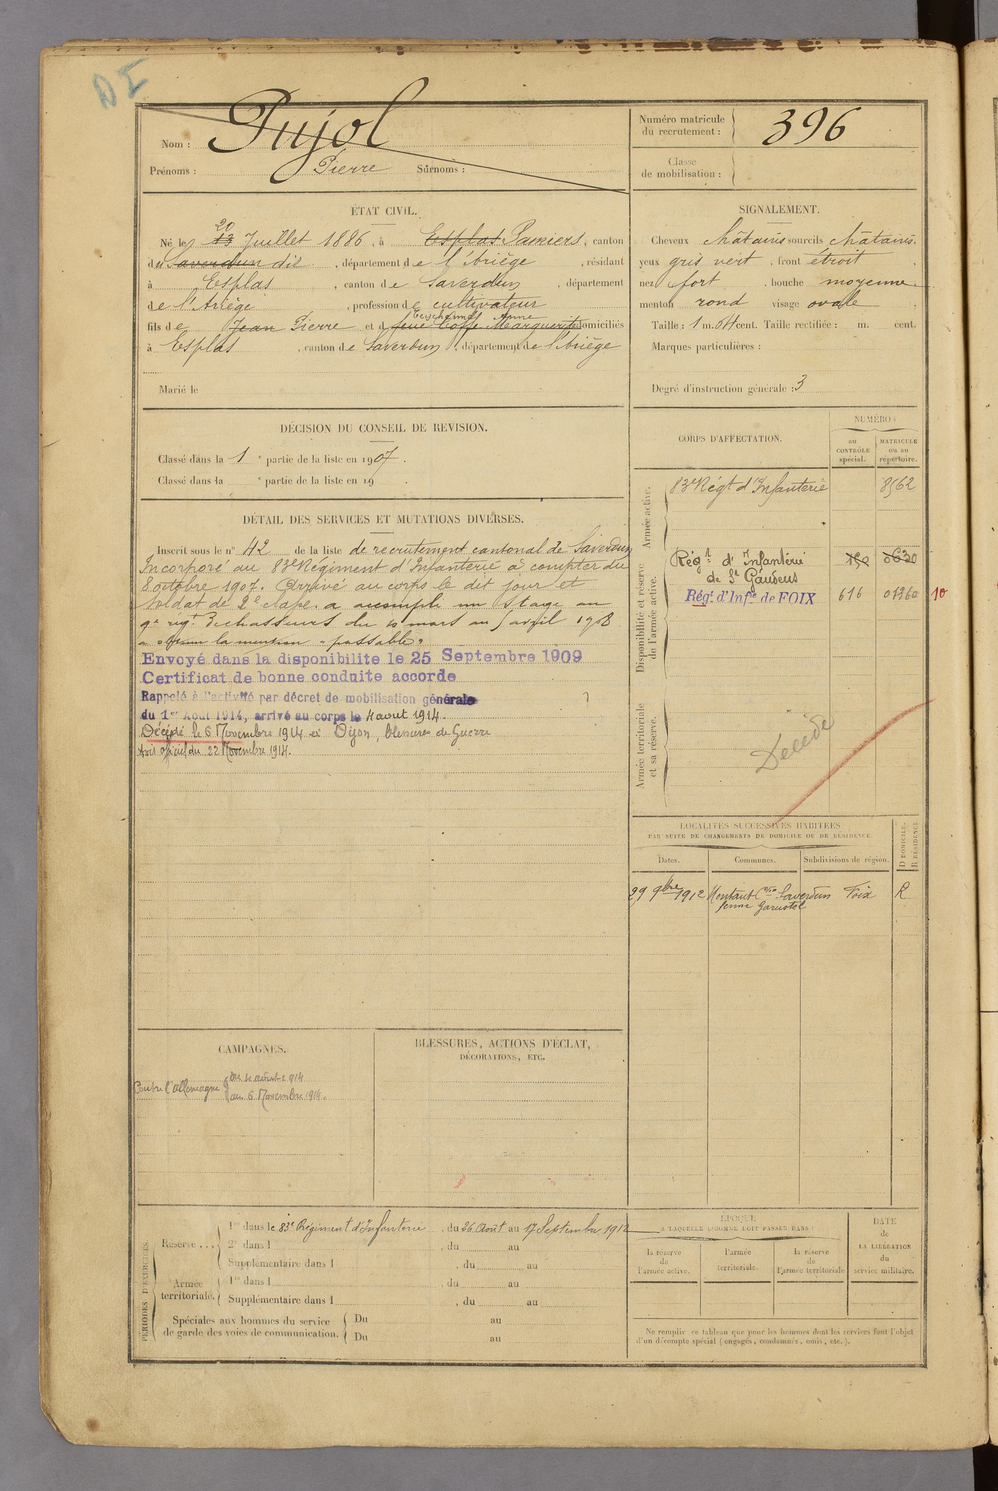 DI
Nom : Pujol
Prénoms : Pierre Surnoms :
Numéro matricule du recrutement : 396
Classe de mobilisation :
ÉTAT CIVIL.
20
Né le 13 Juillet 1886, à Esplas Pamiers, canton
du Saverdun dit, département de l'Ariège, résidant
à Esplas, canton de Saverdun, département
de l'Ariège, profession de cultivateur
Anne
fils de Jean Pierre et de feue Marguerite domiciliés
à Esplas, canton de Saverdun, département de l'Ariège
Marié le
SIGNALEMENT.
Cheveux châtains sourcils châtains.
yeux gris vert, front étroit,
nez fort, bouche moyenne
menton rond visage ovale
Taille : 1 m. 64 cent. Taille rectifiée : m. cent.
Marques particulières :
Degré d'instruction générale : 3
DÉCISION DU CONSEIL DE REVISION.
Classé dans la 1 e partie de la liste en 1907.
Classé dans la e partie de la liste en 19 .
DÉTAIL DES SERVICES ET MUTATIONS DIVERSES.
Inscrit sous le n° 42 de la liste de recrutement cantonal de Saverdun
Incorporé au 83e Régiment d'Infanterie à compter du
8 octobre 1907. Arrivé au corps le dit jour et
soldat de 2e classe. a accompli un stage au
9e rég. chasseurs du 10 mars au 5 avril 1908
a obtenu la mention "passable"
Envoyé dans la disponibilite le 25 Septembre 1909
Certificat de bonne conduite accorde
Rappelé à l'activité par décret de mobilisation générale
du 1er Août 1914, arrivé au corps le 4 aout 1914.
Décédé le 6 Novembre 1914 à Dijon, blessures de Guerre
Avis officiel du 22 Novembre 1914.
CORPS D'AFFECTATION.
NUMÉRO :
au CONTRÔLE spécial.
MATRICULE ou au répertoire.
Armée active.
83e Régt d'Infanterie 8562
Disponibilité et réserve de l'armée active.
Régt d'Infanterie
de St Gaudens
Régt d'Infie de FOIX 616 10
Armée territoriale et sa réserve.
Décédé
LOCALITÉS SUCCESSIVES HABITÉES
PAR SUITE DE CHANGEMENTS DE DOMICILE OU DE RÉSIDENCE.
Dates. Communes. Subdivisions de région. D DOMICILE. R RÉSIDENCE
29 9bre 1912 Montaut con Saverdun Foix R
ferme
CAMPAGNES.
Contre l'Allemagne du 4 août 1914
au 6 Novembre 1914.
BLESSURES, ACTIONS D'ÉCLAT,
DÉCORATIONS, ETC.
PÉRIODES D'EXERCICES.
Réserve ...
1re dans le 83e Régiment d'Infanterie, du 26 Août au 17 Septembre 1912
2e dans l , du au
Supplémentaire dans l , du au
Armée territoriale.
1re dans l , du au
Supplémentaire dans l , du au
Spéciales aux hommes du service de garde des voies de communication.
Du au
Du au
ÉPOQUE
À LAQUELLE L'HOMME DOIT PASSER DANS :
la réserve de l'armée active.
l'armée territoriale.
la réserve de l'armée territoriale
DATE de LA LIBÉRATION du service militaire.
Ne remplir ce tableau que pour les hommes dont les services font l'objet
d'un décompte spécial (engagés, condamnés, omis, etc.).